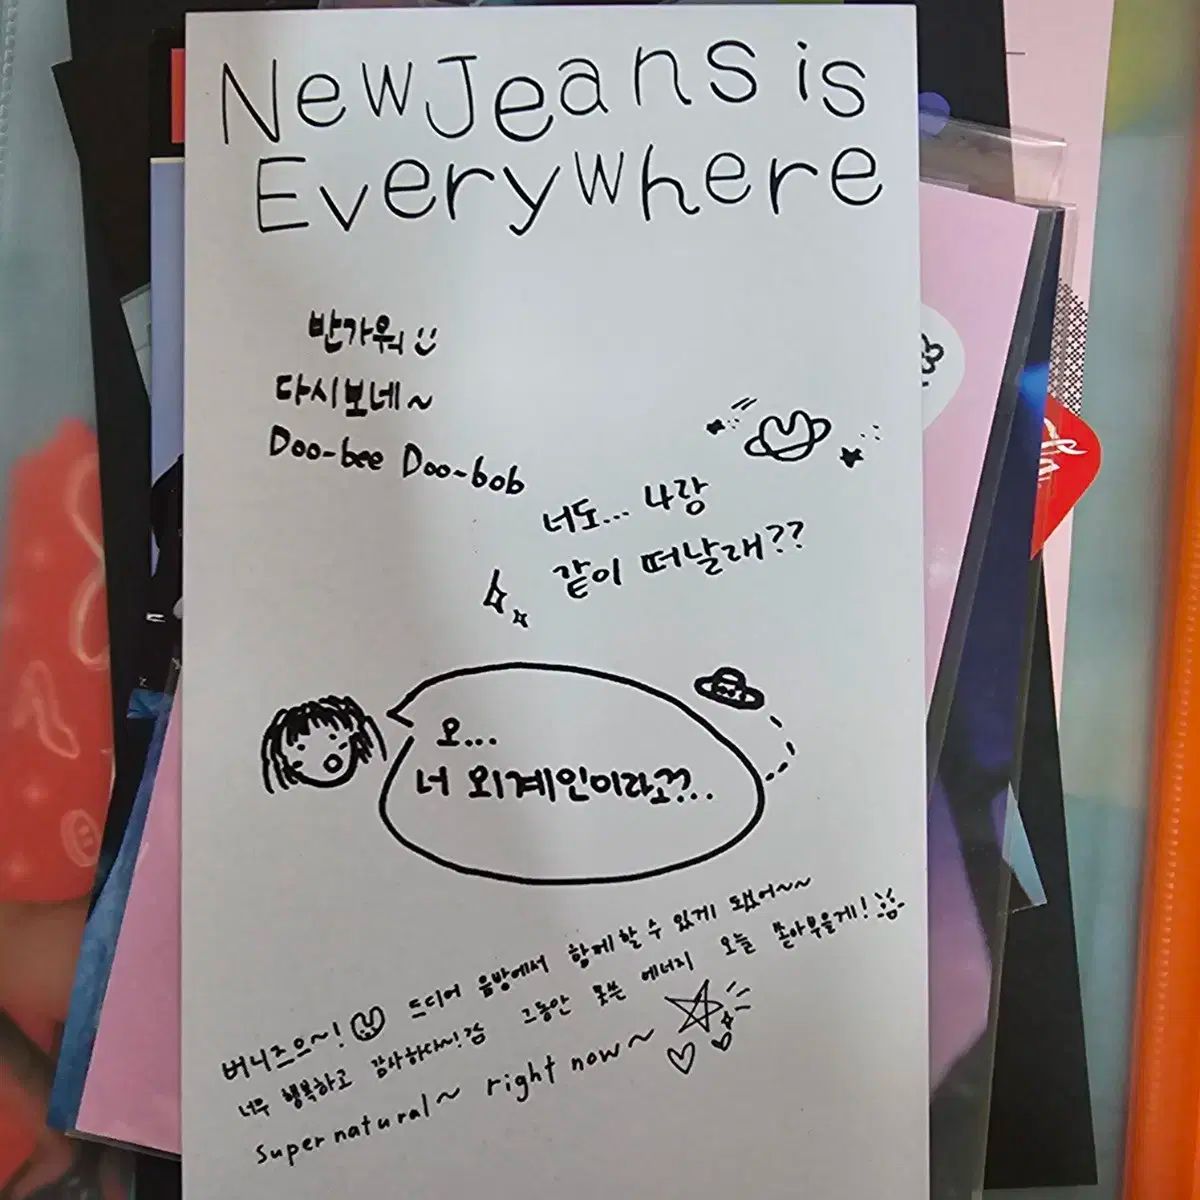 NewJeans is
Everywhere
반가워
다시보네~
Doo-bee Doo-bob
너도... 나랑
같이 떠날래??
오...
너 외계인이라고??..
버니즈으~! 드디어 음방에서 함께할 수 있게 됐어~~
너무 행복하고 감사하다~! 그동안 못쓴 에너지 오늘 쏟아부을게!
super natural~ right now~